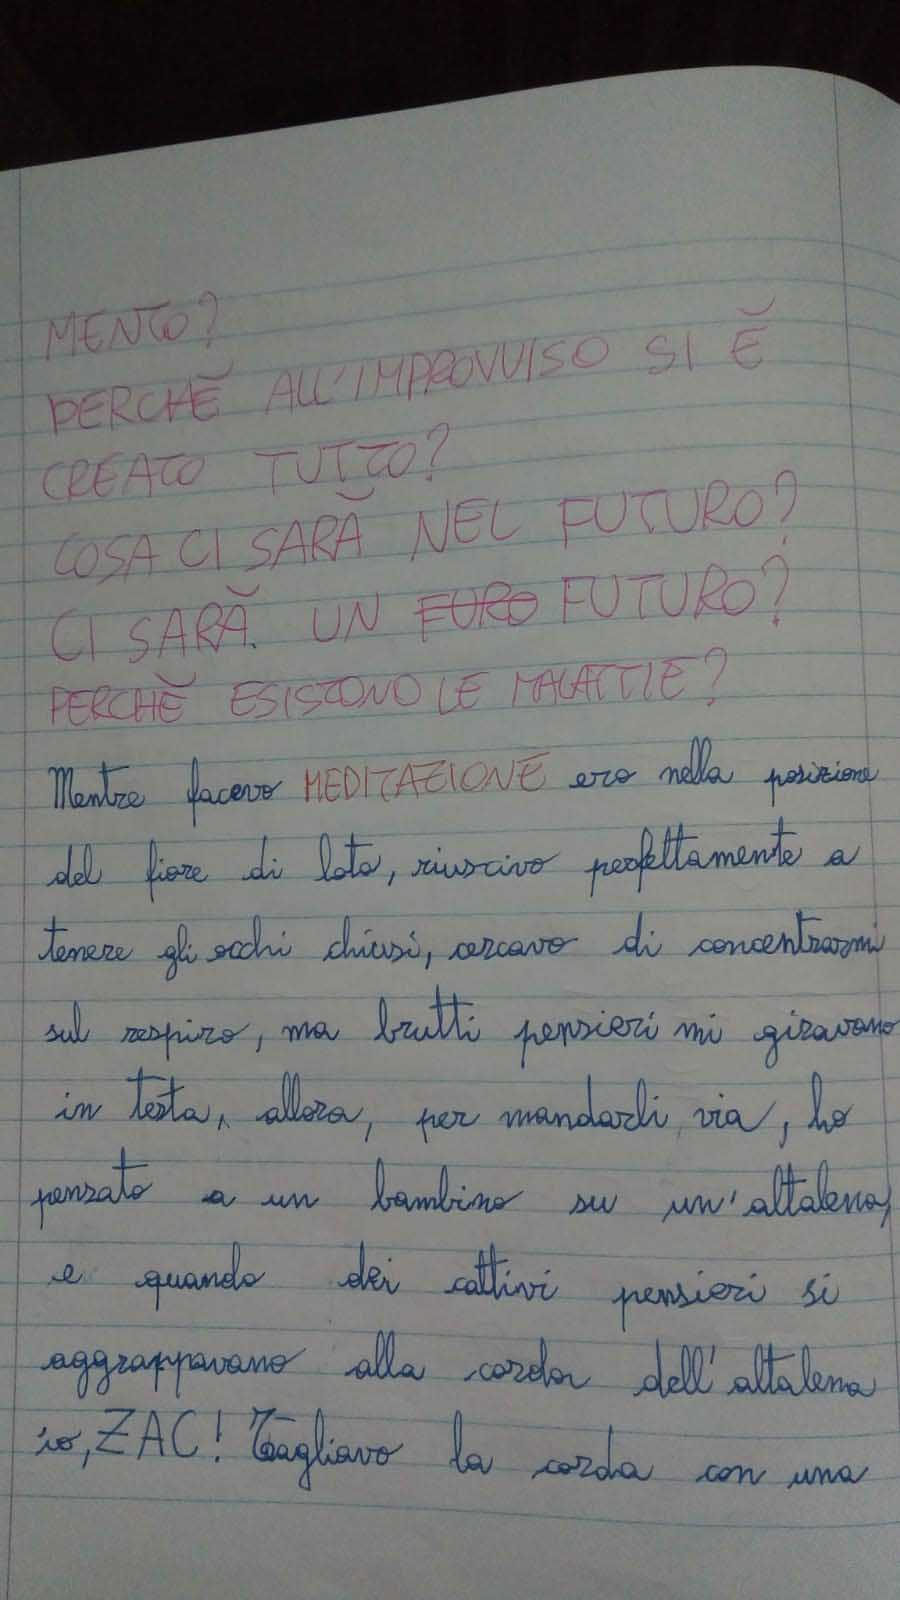 MENTO?
PERCHÈ ALL'IMPROVVISO SI È
CREATO TUTTO?
COSA CI SARÀ NEL FUTURO?
CI SARÀ. UN EURO FUTURO?
PERCHÈ ESISTONO LE MALATTIE?
Mentre facevo MEDITAZIONE ero nella posizione
del fiore di loto, riuscivo perfettamente a
tenere gli occhi chiusi, cercavo di concentrarmi
sul respiro, ma brutti pensieri mi giravano
in testa, allora, per mandarli via, ho
pensato a un bambino su un'altalena,
e quando dei cattivi pensieri si
aggrappavano alla corda dell'altalena
io, ZAC! Tagliavo la corda con una